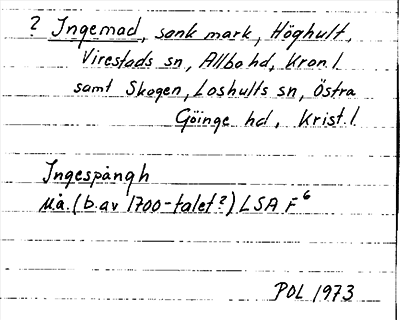 ? Ingemad, sank mark, Höghult,
Virestads sn, Allbo hd, Kron. l.
samt Skogen, Loshults sn, Östra
Göinge hd, Krist. l.
Ingespångh
u.å. (b. av 1700-talet?) LSA F6
POL 1973